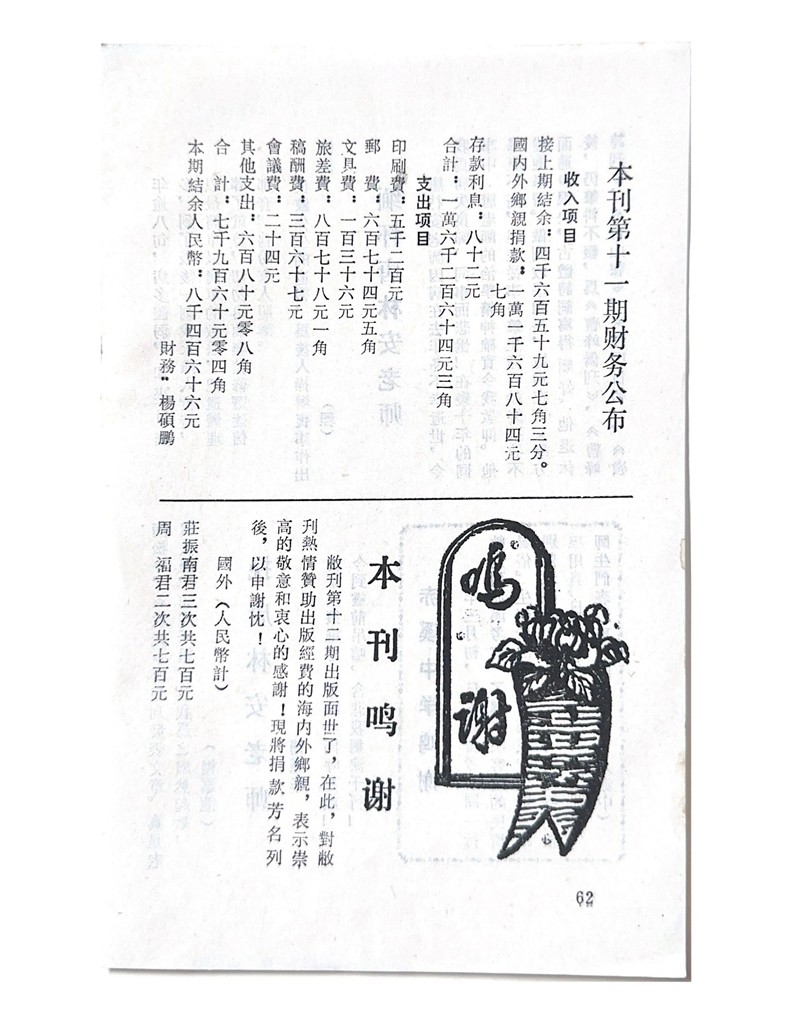 本刊第十一期财务公布
收入项目
接上期结余：四千六百五十九元七角三分。
國内外鄉親捐款：一萬一千六百八十四元
七角
存款利息：八十二元
合計：一萬六千二百六十四元三角
支出项目
印刷費：五千二百元
郵　費：六百七十四元五角
文具費：一百三十六元
旅差費：八百七十八元一角
稿酬費：三百六十七元
會議費：二十四元
其他支出：六百八十元零八角
合　計：七千九百六十元零四角
本期結余人民幣：八千四百六十六元
財務：楊碩鵬
鸣谢
本刊鸣谢
敝刊第十二期出版面世了，在此，對敝
刊熱情贊助出版經費的海内外鄉親，表示崇
高的敬意和衷心的感謝！現將捐款芳名列
後，以申謝忱！
國外（人民幣計）
莊振南君三次共七百元
周　福君二次共七百元
62